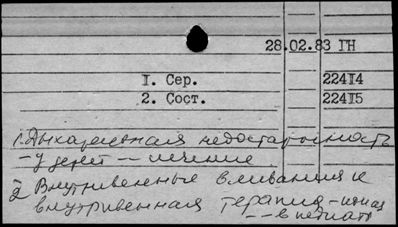 28.02.83 ГН
I. Сер. 224I4
2. Сост. 224I5
1. Дыхательная недостаточность
- у детей -- лечение
2 Внутривенные вливания и
внутривенная терапия -
-- в педиат